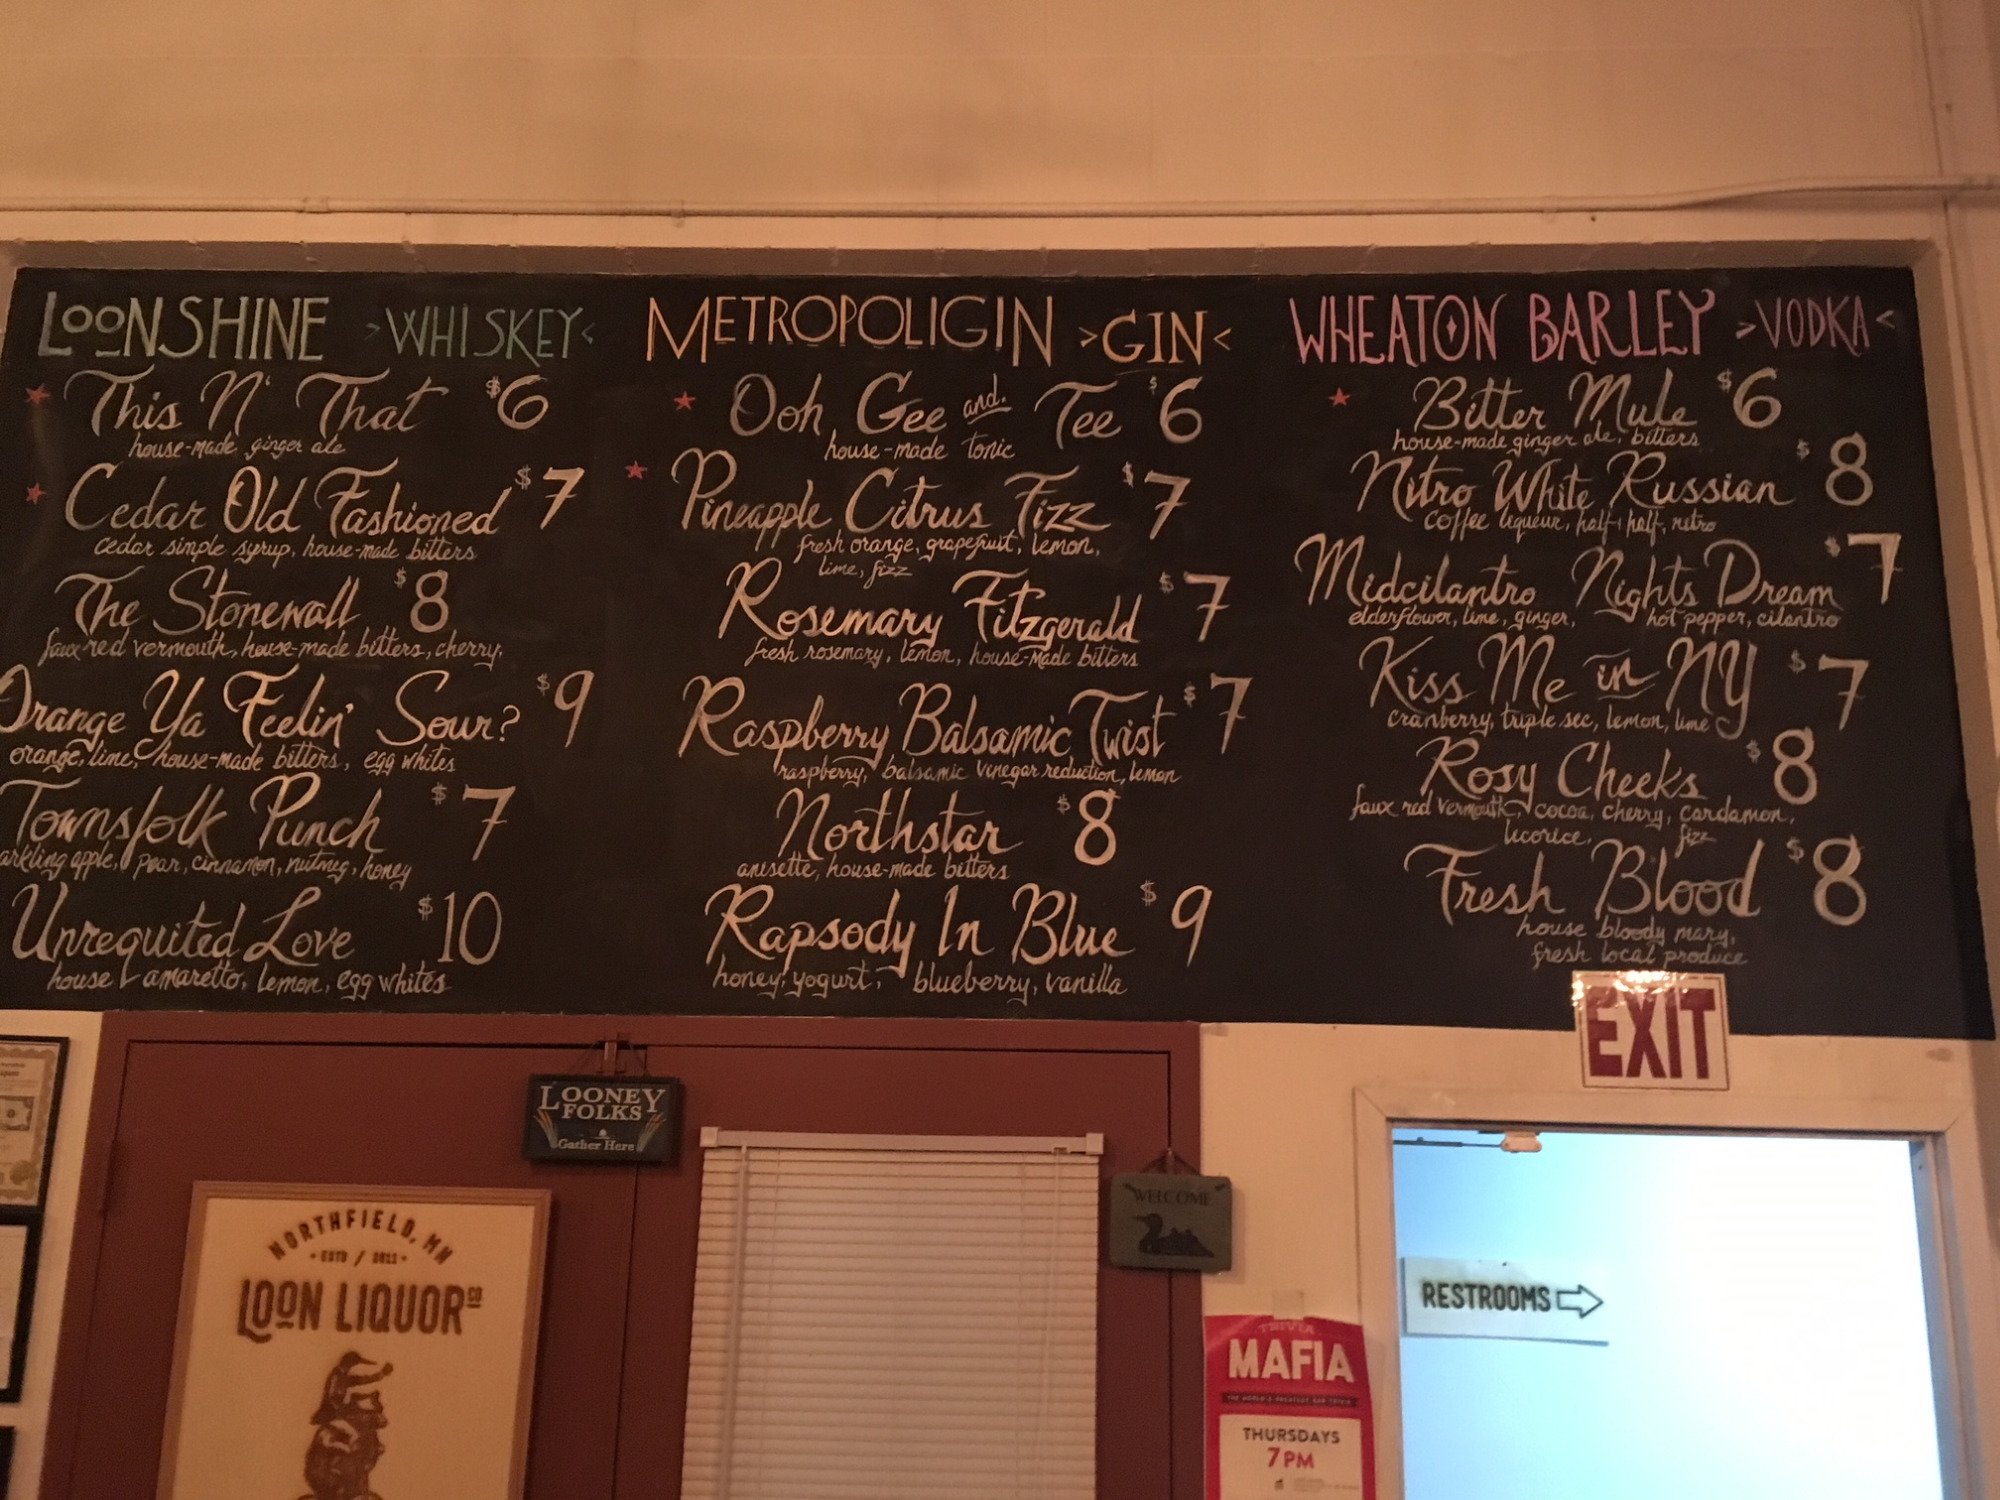 LOONSHINE >WHISKEY<
This N' That $6
house-made ginger ale
Cedar Old Fashioned $7
cedar simple syrup, house-made bitters
The Stonewall $8
faux red vermouth, house-made bitters, cherry,
Orange Ya Feelin' Sour? $9
orange, lime, house-made bitters, egg whites
Townsfolk Punch $7
arkling apple, pear, cinnamon, nutmeg, honey
Unrequited Love $10
house amaretto, lemon, egg whites
METROPOLIGIN >GIN<
Ooh Gee and Tee $6
house-made tonic
Pineapple Citrus Fizz $7
fresh orange, grapefruit, lemon,
lime, fizz
Rosemary Fitzgerald $7
fresh rosemary, lemon, house-made bitters
Raspberry Balsamic Twist $7
raspberry, balsamic vinegar reduction, lemon
Northstar $8
anisette, house-made bitters
Rapsody In Blue $9
honey, yogurt, blueberry, vanilla
WHEATON BARLEY >VODKA<
Bitter Mule $6
house-made ginger ale, bitters
Nitro White Russian $8
coffee liqueur, half + half, nitro
Midcilantro Nights Dream $7
elderflower, lime, ginger, hot pepper, cilantro
Kiss Me in NY $7
cranberry, triple sec, lemon, lime
Rosy Cheeks $8
faux red vermouth, cocoa, cherry, cardamon,
licorice, fizz
Fresh Blood $8
house bloody mary,
fresh local produce
EXIT
LOONEY
FOLKS
Gather Here
WELCOME
NORTHFIELD, MN
ESTD / 2011
LOON LIQUOR CO
RESTROOMS
TRIVIA
MAFIA
THE WORLD'S GREATEST BAR TRIVIA
THURSDAYS
7 PM